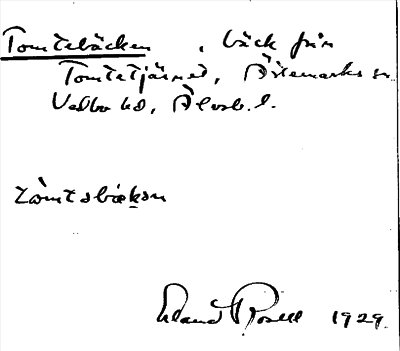 Tomtebäcken, bäck från
Tomtetjärnet, Ärtemarks sn
Vedbo hd, Älvsb. l.
tòmtabækən
Erland Rosell 1929